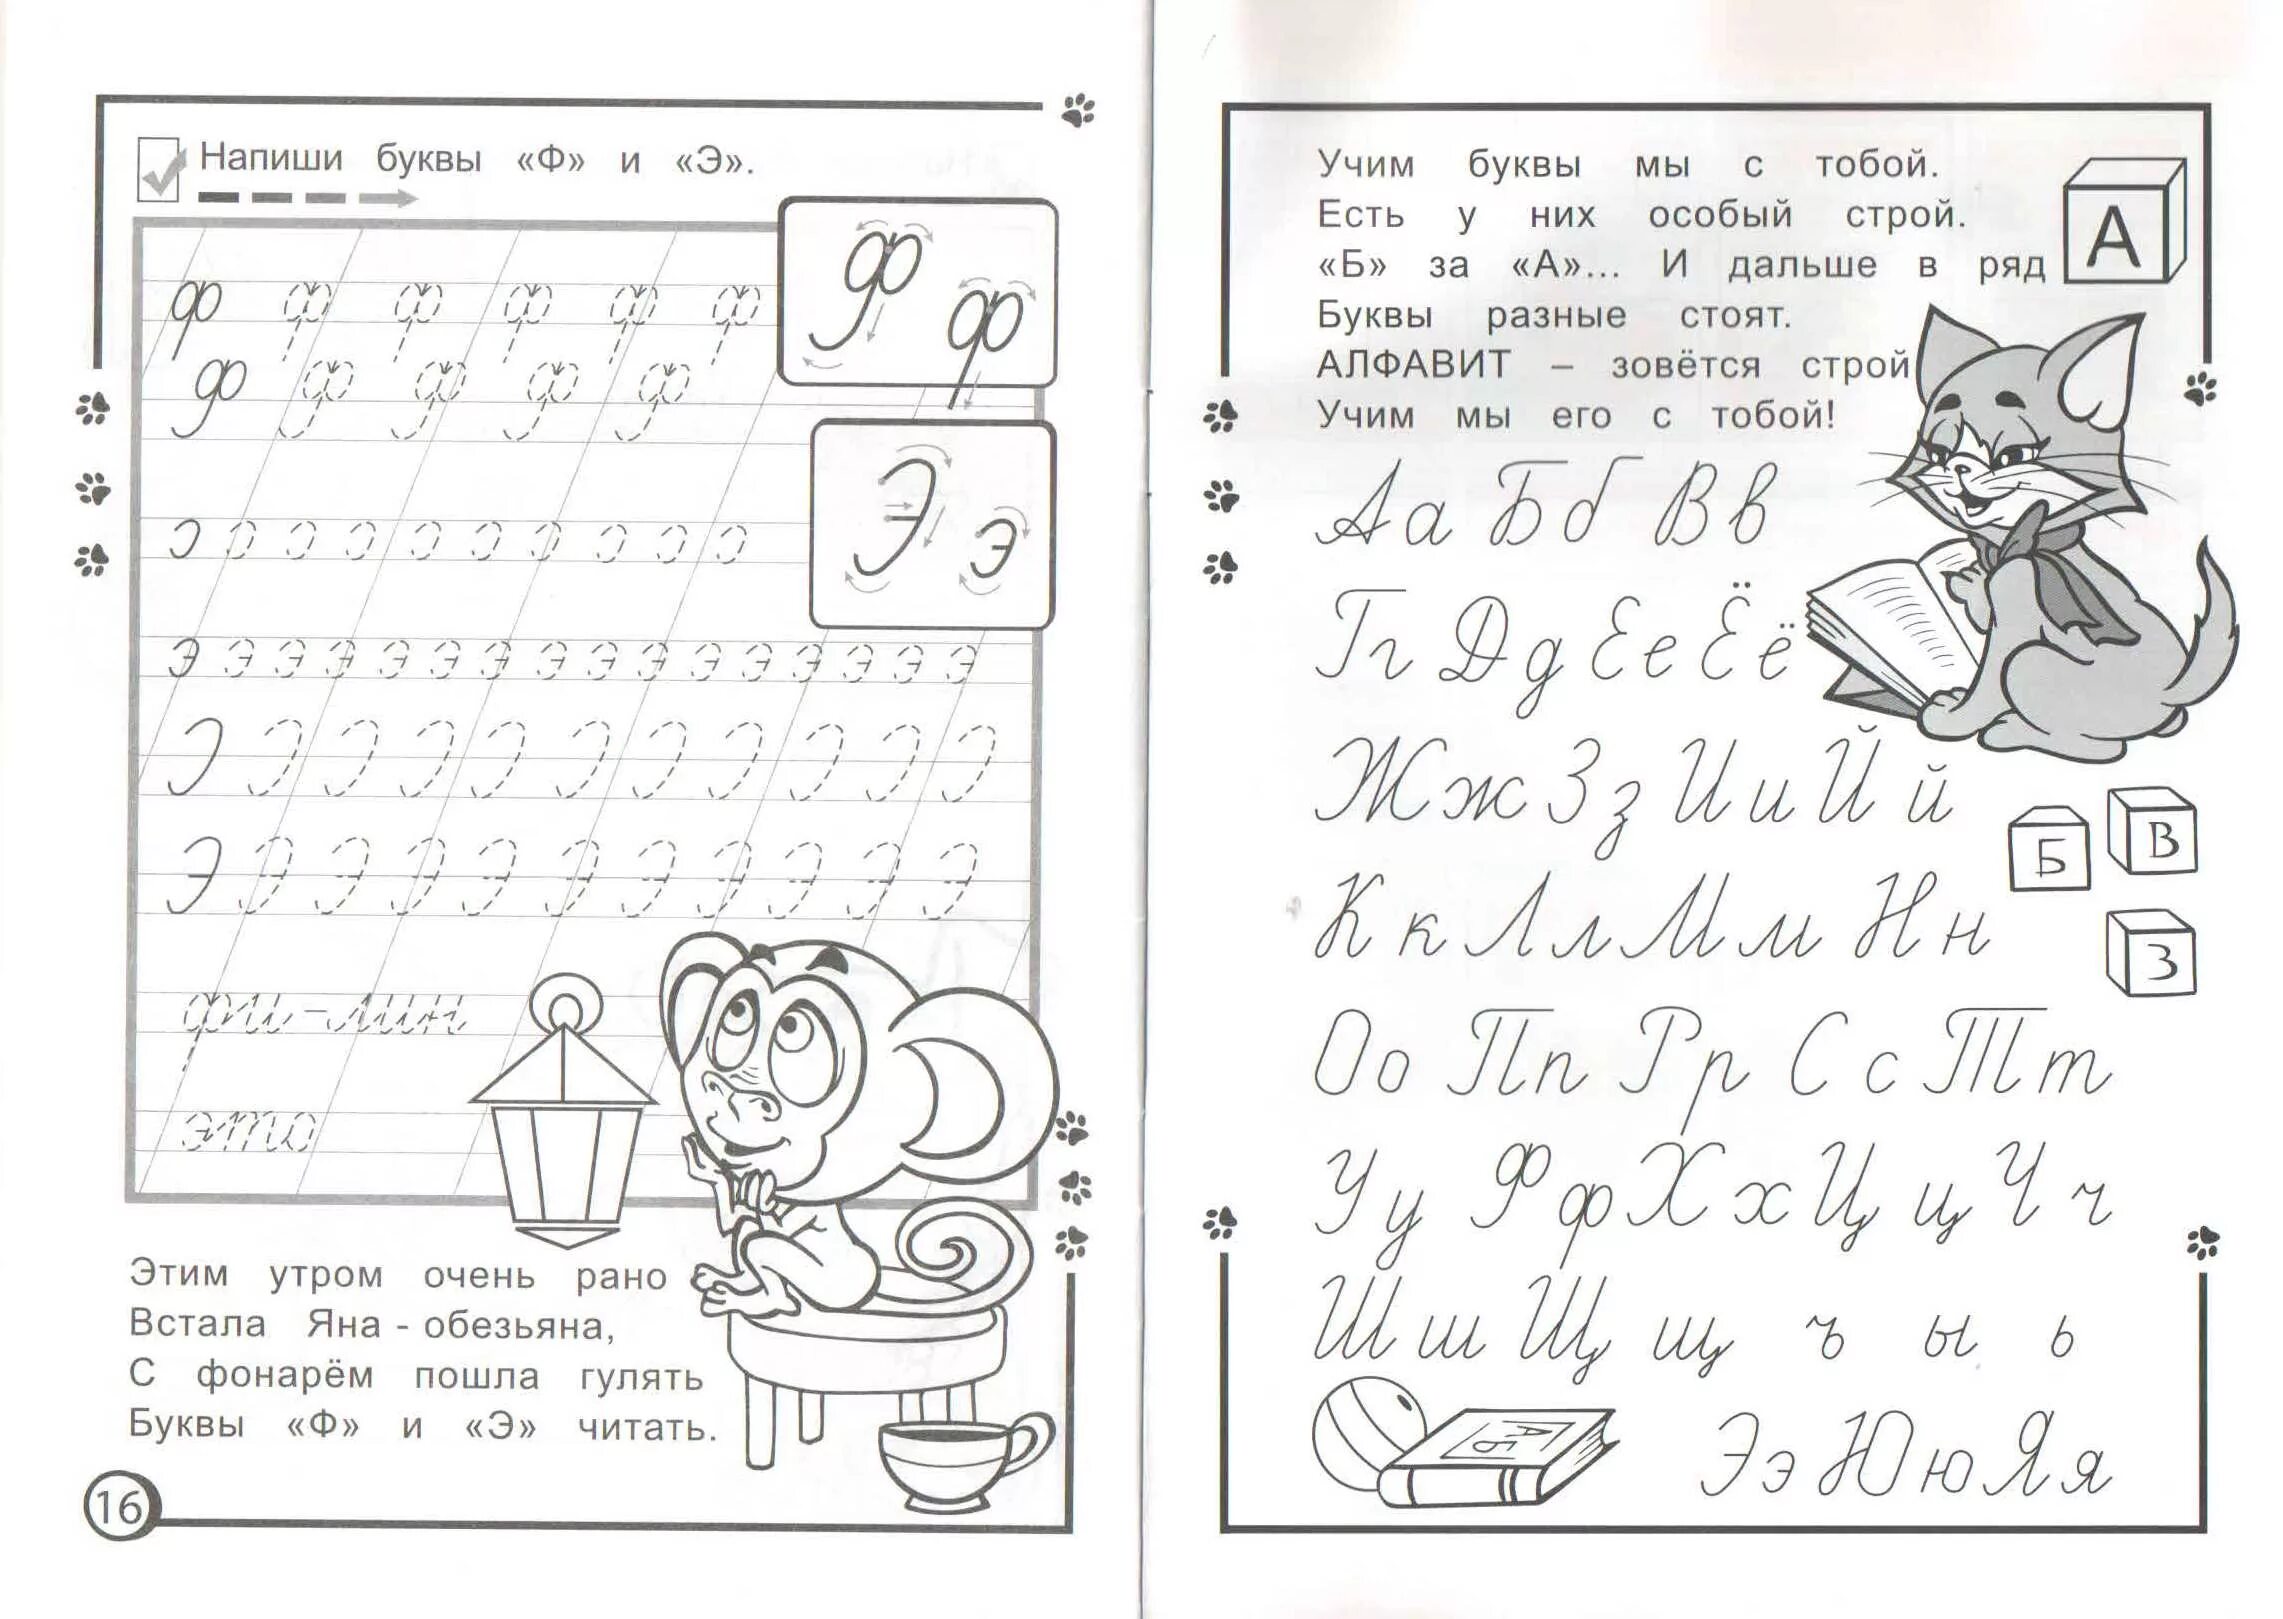 Напиши буквы «Ф» и «Э».
ф ф ф ф ф ф
Ф Ф Ф Ф Ф
Ф ф
Э э
э э э э э э э э э э э э э э э э
Э Э Э Э Э Э Э Э Э Э Э
фи-лин
это
Этим утром очень рано
Встала Яна - обезьяна,
С фонарём пошла гулять
Буквы «Ф» и «Э» читать.
16
Учим буквы мы с тобой.
Есть у них особый строй.
«Б» за «А»... И дальше в ряд
Буквы разные стоят.
АЛФАВИТ – зовётся строй
Учим мы его с тобой!
А
Аа Бб Вв
Гг Дд Ее Ёё
Жж Зз Ии Йй
Б
В
Кк Лл Мм Нн
З
Оо Пп Рр Сс Тт
Уу Фф Хх Цц Чч
Шш Щщ ъ ы ь
АБ
Ээ Юю Яя